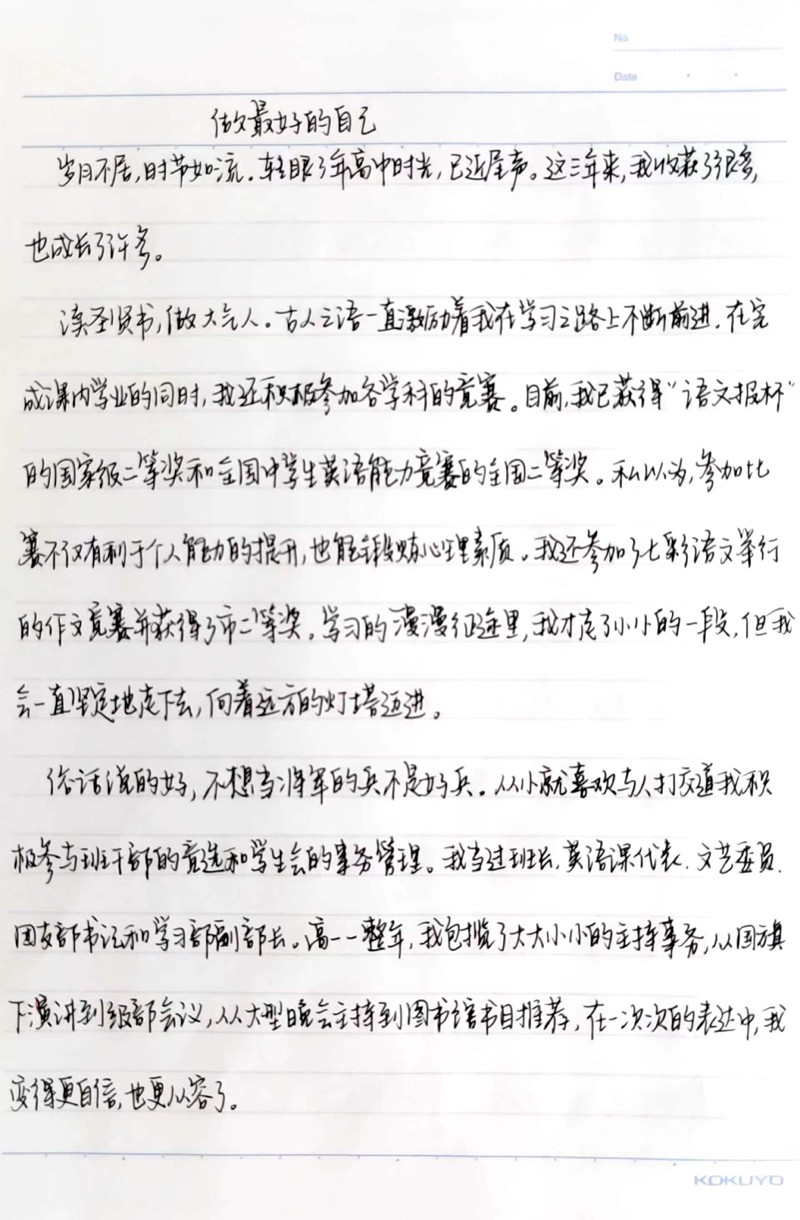 No.
Date
做最好的自己
岁月不居,时节如流.轻眼3年高中时光,已近尾声。这三年来,我收获了很多,
也成长了许多。
读圣贤书,做大气人。古人之语一直激励着我在学习之路上不断前进.在完
成课内学业的同时,我还积极参加各学科的竞赛。目前,我已获得"语文报杯"
的国家级二等奖和全国中学生英语能力竞赛的全国二等奖。私以为,参加比
赛不仅有利于个人能力的提升,也能锻炼心理素质。我还参加了七彩语文举行
的作文竞赛并获得了市二等奖。学习的漫漫征途里,我才走了小小的一段,但我
会一直坚定地走下去,向着远方的灯塔迈进。
俗话说的好,不想当将军的兵不是好兵。从小就喜欢与人打交道我积
极参与班干部的竞选和学生会的事务管理。我当过班长.英语课代表.文艺委员.
团支部书记和学习部副部长。高一一整年,我包揽了大大小小的主持事务,从国旗
下演讲到级部会议,从大型晚会主持到图书馆书目推荐,在一次次的表达中,我
变得更自信,也更从容了。
KOKUYO